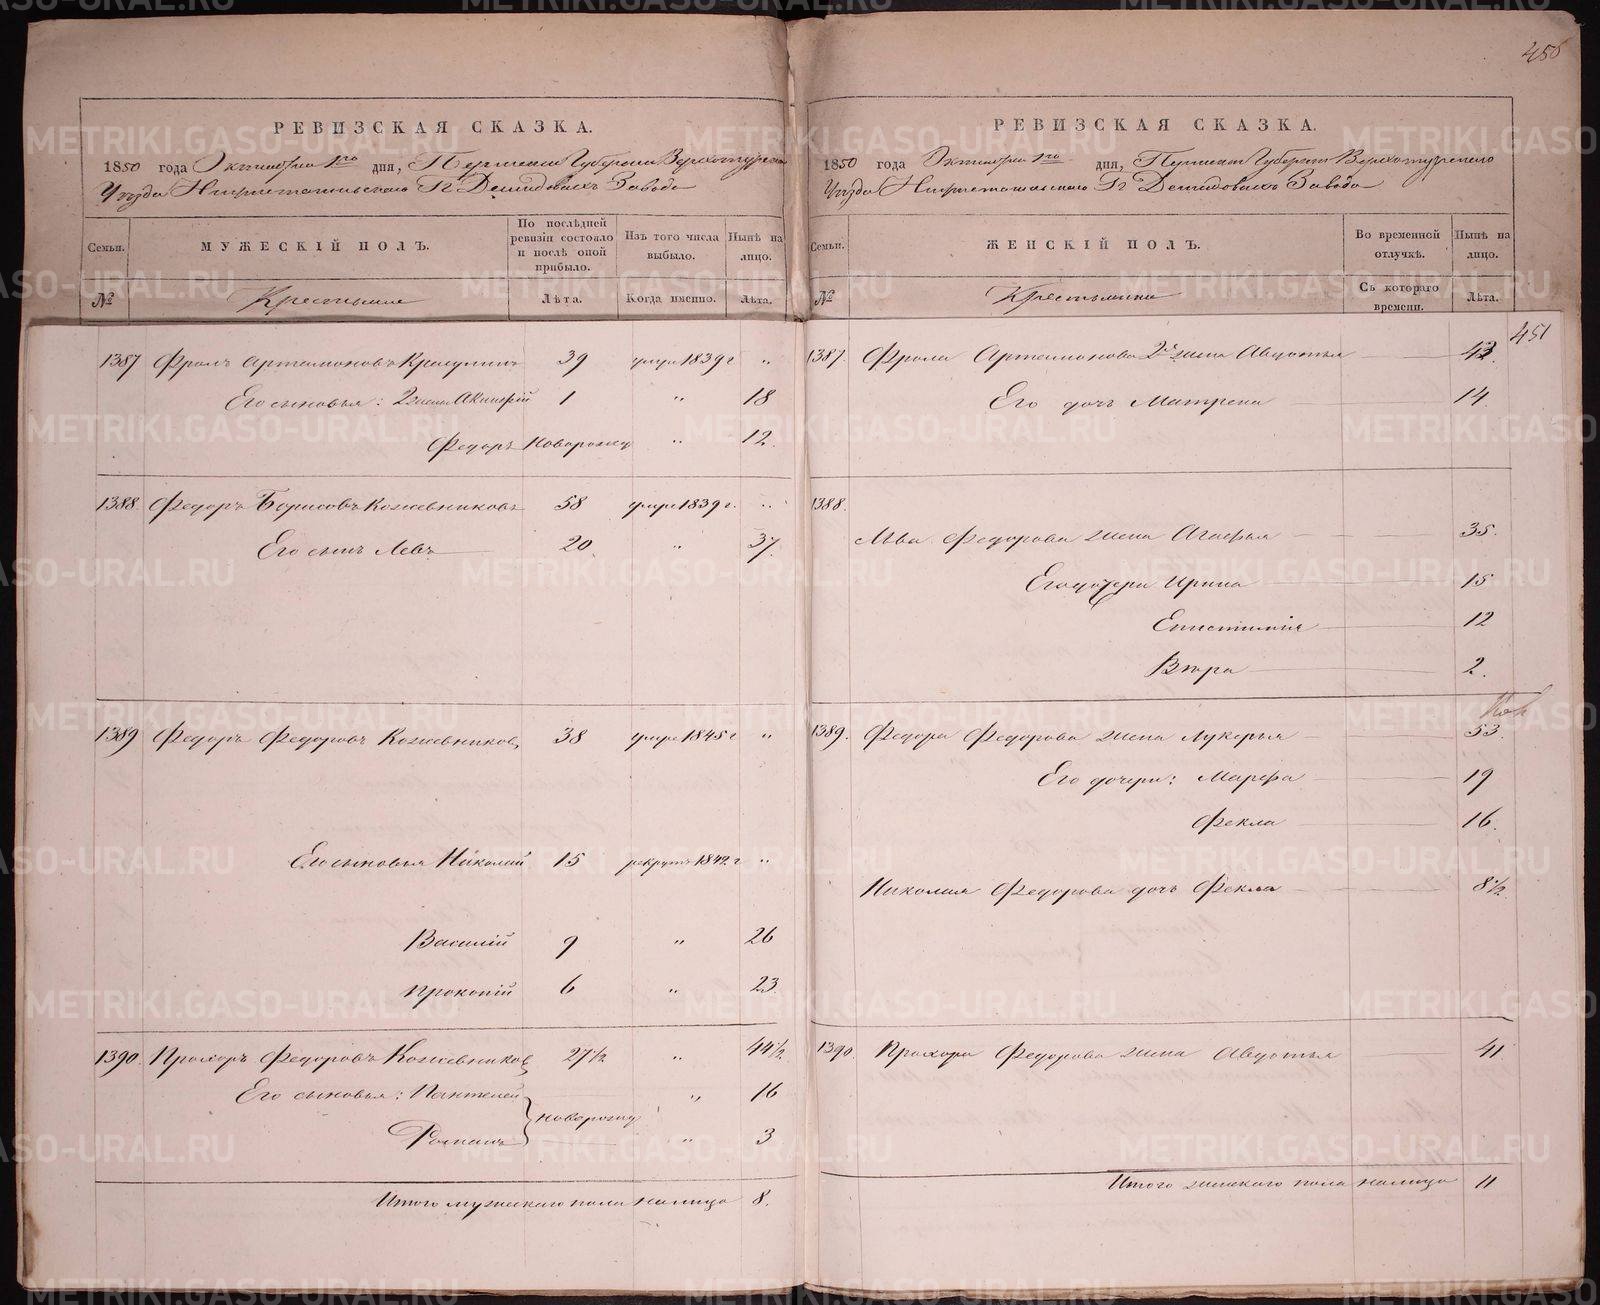 450
РЕВИЗСКАЯ СКАЗКА.
1850 года Октября 1го дня, Пермской Губернии Верхотурскаго
Уѣзда Нижнетагильскаго Гг Демидовыхъ Завода
Семьи. МУЖЕСКІЙ ПОЛЪ. По послѣдней ревизіи состояло и послѣ оной прибыло. Изъ того числа выбыло. Нынѣ на лицо.
№ Крестьяне Лѣта. Когда именно. Лѣта.
1387 Фролъ Артамоновъ 39 умре 1839 г "
Его сыновья: 2 жены 1 " 18
Федоръ новорожд " 12.
1388. Федоръ Борисовъ Кожевниковъ 58 умре 1839 г. "
Его сынъ Левъ 20. " 37.
1389 Федоръ Федоровъ Кожевниковъ 38 умре 1845 г "
Его сыновья Николай 15 рекрутъ 1842 г "
Василій 9 " 26
Прокопій 6 " 23
1390. Прохоръ Федоровъ Кожевниковъ 27 1/2 " 44 1/2
Его сыновья: Пантелей " 16
новорожд
Романъ " 3
Итого мужескаго пола на лицо 8.
РЕВИЗСКАЯ СКАЗКА.
1850 года Октября 1го дня, Пермской Губернии Верхотурскаго
Уѣзда Нижнетагильскаго Гг Демидовыхъ Завода
Семьи. ЖЕНСКІЙ ПОЛЪ. Во временной отлучкѣ. Нынѣ на лицо.
№ Крестьянки Съ котораго времени. Лѣта.
451
1387. Фрола Артамонова 2я жена Авдотья 43.
Его дочь Матрена 14.
1388.
Льва Федорова жена Агафья 35.
Его дочери Ирина 15
Епистимія 12
Вѣра 2.
1389. Федора Федорова жена Лукерья 53.
Его дочери: Марфа 19
Фекла 16.
Николая Федорова дочь Фекла 8 1/2
1390. Прохора Федорова жена Авдотья 41.
Итого женскаго пола на лицо 11
METRIKI.GASO-URAL.RU